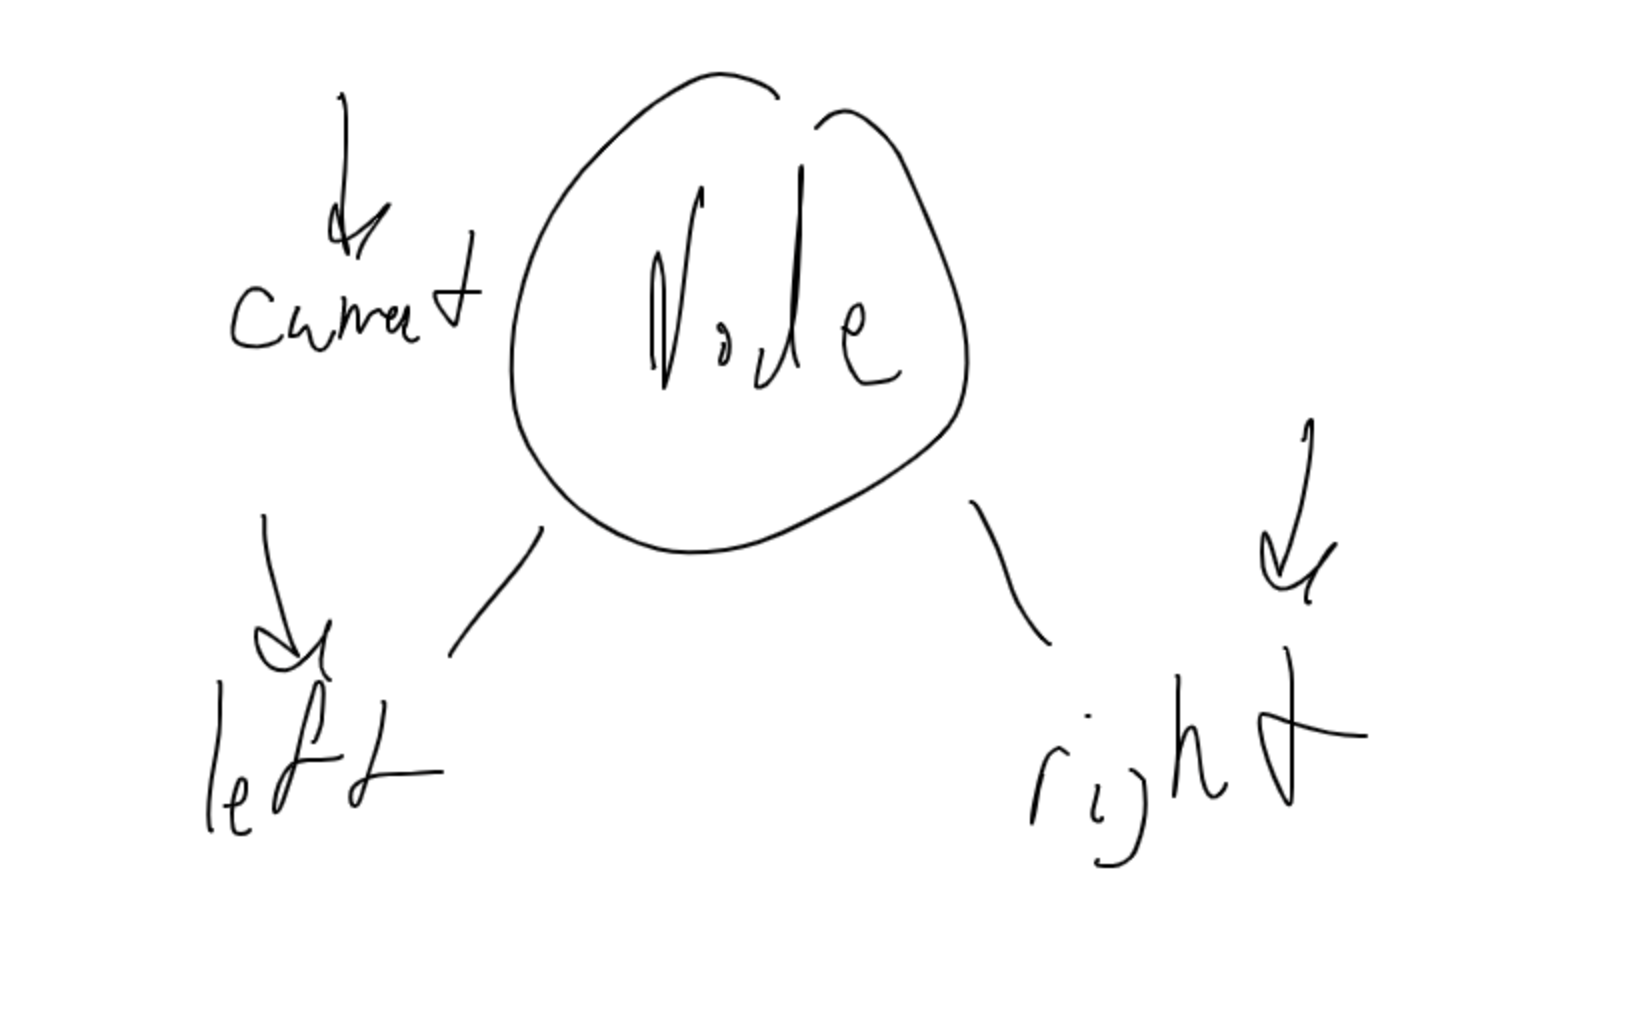 current
Node
left
right